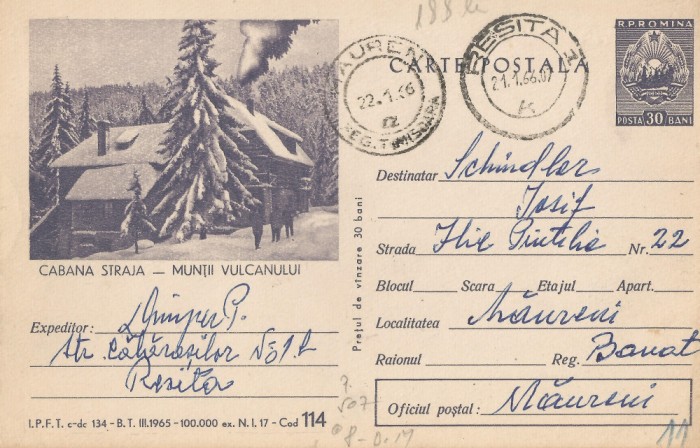 188 lei
R.P.ROMINA
POSTA 30 BANI
CARTE POSTALA
MAURENI
22.1.66
REG. TIMISOARA
RESITA 1
21.1.66.07
Destinatar Schindler
Iosif
Strada Ilie Pintilie Nr. 22
Blocul Scara Etajul Apart.
Localitatea Măureni
Raionul Reg. Banat
Oficiul poștal: Măureni
Prețul de vînzare 30 bani
CABANA STRAJA — MUNȚII VULCANULUI
Expeditor:
Str. Călărașilor No
Resita
I.P.F.T. c-dc 134 - B. T. III.1965 - 100.000 ex. N. I. 17 - Cod 114
507
11